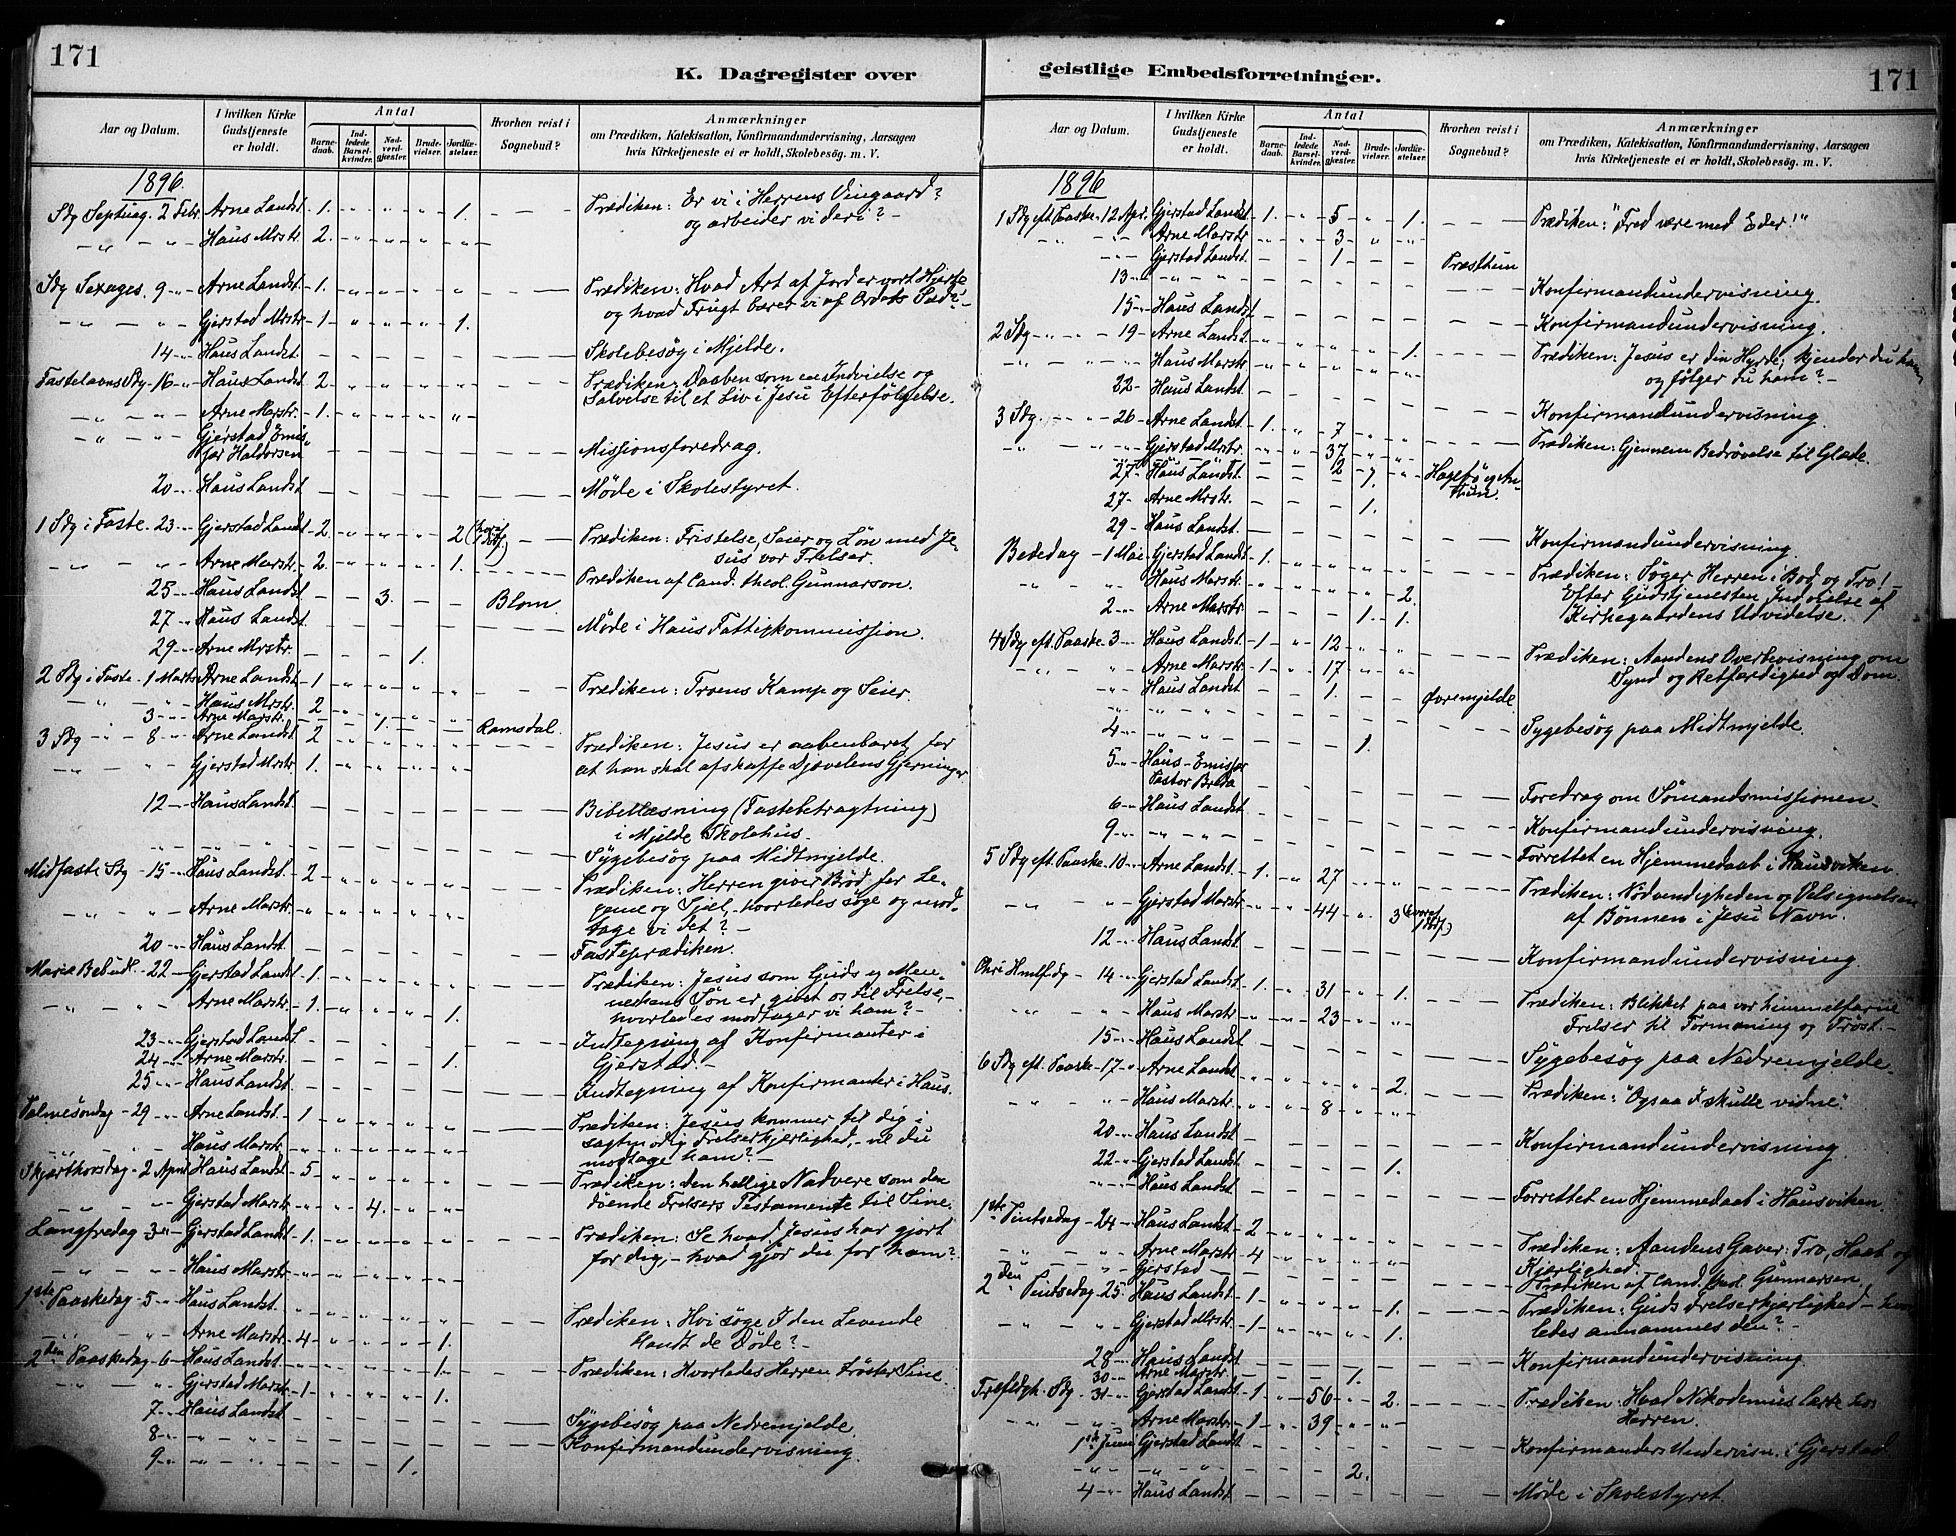 171
K. Dagregister over
Aar og Datum.
I hvilken Kirke Gudstjeneste er holdt.
Antal
Barnedaab.
Indledede Barselkvinder.
Nadverdgjester.
Brudevielser.
Jordfæstelser.
Hvorhen reist i Sognebud?
Anmærkninger
om Prædiken, Katekisation, Konfirmandundervisning, Aarsagen
hvis Kirketjeneste ei er holdt, Skolebesög. m. V.
1896.
Sdg Septuag. 2 Febr. Arne Landst. 1. " " " 1. – – – Prædiken: Er vi i Herrens Vingaard?
og arbeider vi deri? –
– " – " – Haus Mrstr. 2. " " " "
Sdg Sexages. 9 " Arne Landst. 1. " " " " – – – Prædiken: Hvad Art af Jord er vort Hjerte
og hvad Frugt bærer vi af Ordets Sæd? –
– " – " – Gjerstad Mrstr. 1. " " " 1.
14 " Haus Landst. – – – – – Skolebesøg i Mjelde.
Fastelavns Sdg 16 " Haus Landst. 2 " " " " – – – Prædiken: Daaben som en Indvielse og
Salvelse til et Liv i Jesu Efterfølgelse.
– " – " – Arne Marstr. 1. " " " "
– " – " – Gjerstad Emis-
sær Haldorsen – – – – – Missionsforedrag.
20 " Haus Landst. – – – – – Møde i Skolestyret.
1 Sdg i Faste 23 " Gjerstad Landst 2 " " " 2 – – – Prædiken: Fristelse, Seier og Løn med Je-
sus vor Frelser.
– " – " – Arne Marstr. 2. " " " 1. – – – Prædiken af Cand. theol. Gunnarson.
25 " Haus Landst. – – 3. – – Blom.
27 " Haus Landst. – – – – – Møde i Haus Fattigkommission.
29 " Arne Mrstr. – – – 1.
2 Sdg i Faste 1 Marts Arne Landst. 1 " " " " – – – Prædiken: Troens Kamp og Seier.
– " – " – Haus Mrstr. 2 " " " "
3 " Arne Marstr. – – 1. – – Ramsdal.
3 Sdg – " – 8 " Arne Landst. 2 " " " " Prædiken: Jesus er aabenbaret for
at han skal afskaffe Djævelens Gjerninger.
– " – " – Gjerstad Mrstr. 1. " " " "
12 " Haus Landst. – – – – – Bibellæsning (Fastebetragtning)
i Mjelde Skolehus.
" " – " – " Sygebesøg paa Midtmjelde.
Midfaste Sdg 15 " Haus Landst. 2 " " " " – – – Prædiken: Herren giver Brød for Le-
geme og Sjæl, – hvorledes søge og mod-
tage vi det? –
– " – " – Arne Marstr. " " " " "
20 " Haus Landst. – – – – – Fasteprædiken.
Mariæ Bebud. 22 Gjerstad Landst 1. " " " " – – – Prædiken: Jesus som Guds og Men-
neskens Søn er givet os til Frelse, –
hvorledes modtager vi ham? –
– " – " – Arne Marstr. 1. " " " 1.
23 " Gjerstad Landst. – – – – – Indtegning af Konfirmanter i
Gjerstad. –
24 " Arne Marstr. – – – – 1.
25 " Haus Landst. – – – – – Indtegning af Konfirmanter i Haus.
Palmesøndag 29 " Arne Landst. 1 " " " " – – – Prædiken: Jesus kommer til dig i
sagtmodig Frelserkjærlighed, – vil du
modtage ham? –
– " – " – Haus Marstr. " " " " "
Skjærthorsdag 2 April Haus Landst. 5 " " " " – – – Prædiken: Den hellige Nadvere som den
døende Frelsers Testamente til Sine.
– " – " – Gjerstad Marstr. " " 4. " "
Langfredag 3 " Gjerstad Landst. 1. " " " " – – – Prædiken: Se hvad Jesus har gjort
for dig, – hvad gjør du for ham?
– " – " – Haus Marstr. " " " " "
1ste Paaskedag 5 Haus Landst. " " " " " – – – Prædiken: Hvi søge I den Levende
blandt de Døde? –
– " – " – Arne Marstr. 4 " " " 1.
2den Paaskedag 6 Haus Landst. " " " " 1. – – – Prædiken: Hvorledes Herren trøster Sine.
– " – " – Gjerstad Marstr. 1 " " " 1.
7 " Haus Landst. – – – – – Sygebesøg paa Nedremjelde.
8 " – " – " – – – – – Konfirmandundervisning.
9 " – " – " – – – 1.
171
geistlige Embedsforretninger.
Aar og Datum.
I hvilken Kirke Gudstjeneste er holdt.
Antal
Barnedaab.
Indledede Barselkvinder.
Nadverdgjester.
Brudevielser.
Jordfæstelser.
Hvorhen reist i Sognebud?
Anmærkninger
om Prædiken, Katekisation, Konfirmandundervisning, Aarsagen
hvis Kirketjeneste ei er holdt, Skolebesög. m. V.
1896
1 Sdg eft. Paaske 12 Apr. Gjerstad Landst. 1. " 5 " 1. – – – Prædiken: "Fred være med Eder!"
– " – " – Arne Marstr. " " 3 " "
– " – Gjerstad Landst. – – 1 – – Præsthun
13 " – " – " – – – – – Konfirmandundervisning.
15 " Haus Landst. – – – – – Konfirmandundervisning.
2 Sdg – " – 19 " Arne Landst. " " " " 1. – – – Prædiken: Jesus er din Hyrde; kjender du ham
og følger du ham? –
– " – " – Haus Marstr. " " " " "
22 " Haus Landst. – – – – – Konfirmandundervisning.
3 Sdg. – " – 26 " Arne Landst. 1. " 7 " " – – – Prædiken: Gjennem Bedrøvelse til Glæde.
– " – " – Gjerstad Mrstr. " " 37 " "
27 " Haus Landst. – – 2 – – 
27 " Arne Mrstr. – – – 1.
29 " Haus Landst. – – – – – Konfirmandundervisning.
Bededag 1 Mai Gjerstad Landst. 1. " " " " – – – Prædiken: Søger Herren i Bod og Tro! –
Efter Gudstjenesten Indvielse af
Kirkegaardens Udvidelse.
– " – " – Haus Marstr. " " " " 2.
2 " Arne Marstr. – – – 1. 1.
4 Sdg eft. Paaske 3 Haus Landst. 1 " 12 " " – – – Prædiken: Aandens Overbevisning om
Synd og Retfærdighed og Dom.
– " – " – Arne Marstr. 1 " 17 " "
– " – Haus Landst. – – 1. – – Øvremjelde.
– " – " – " Sygebesøg paa Midtmjelde.
4 " – " – " – – – 1.
5 " Haus – Emissær
Pastor – – – – – Foredrag om Sømandsmissionen.
6 " Haus Landst. – – – – – Konfirmandundervisning.
9 " – " – " – – – – – Forrettet en Hjemmedaab i Hausviken.
5 Sdg eft. Paaske 10 " Arne Landst. 1. " 27 " " – – – Prædiken: Nødvendigheden og Velsignelsen
af Bønnen i Jesu Navn.
– " – " – Gjerstad Marstr. " " 44 " 3
12 " Haus Landst. – – – – – Konfirmandundervisning.
Chri Hmlf.dg 14 Gjerstad Landst. 1. " 31 " 1. – – – Prædiken: Blikket paa vor himmelfarne
Frelser til Formaning og Trøst. –
– " – " – Haus Marstr. " " 23 " "
15 " Haus Landst. – – – – – Sygebesøg paa Nedremjelde.
6 Sdg eft. Paaske 17 " Arne Landst. " " " " 2. – – – Prædiken: "Ogsaa I skulle vidne."
– " – " – Haus Marstr. " " 8 " "
20 " Haus Landst. – – – – – Konfirmandundervisning.
22 " Gjerstad Landst. – – – 1.
" " Haus Landst. – – – – – Forrettet en Hjemmedaab i Hausviken.
1ste Pintsedag 24 " Haus Landst. 2 " " " " – – – Prædiken: Aandens Gaver: Tro, Haab og
Kjærlighed.
– " – " – Arne Marstr. 4 " " " "
" Gjerstad – – – – – Prædiken af Cand. theol. Gunnarsen.
2den Pintsedag 25 Haus Landst. 1 " " " 1. – – – Prædiken: Guds Frelserkjærlighed – hvor-
ledes annammes den? –
– " – " – Gjerstad Mrstr. 1 " " " 1.
28 " Haus Landst. – – – – – Konfirmandundervisning.
30 " Arne Marstr. – – – 1.
Trefdgh. Sdg 31 " Gjerstad Landst. 1 " 56 " 2. – – – Prædiken: Hvad Nikodemus lærte hos
Herren.
– " – " – Arne Marstr. 1 " 39 " "
1ste Juni Gjerstad Landst. – – – – – Konfirmanders Undervisn. i Gjerstad.
– " – " – " – – – 2.
4 " Haus Landst. – – – – – Møde i Skolestyret.